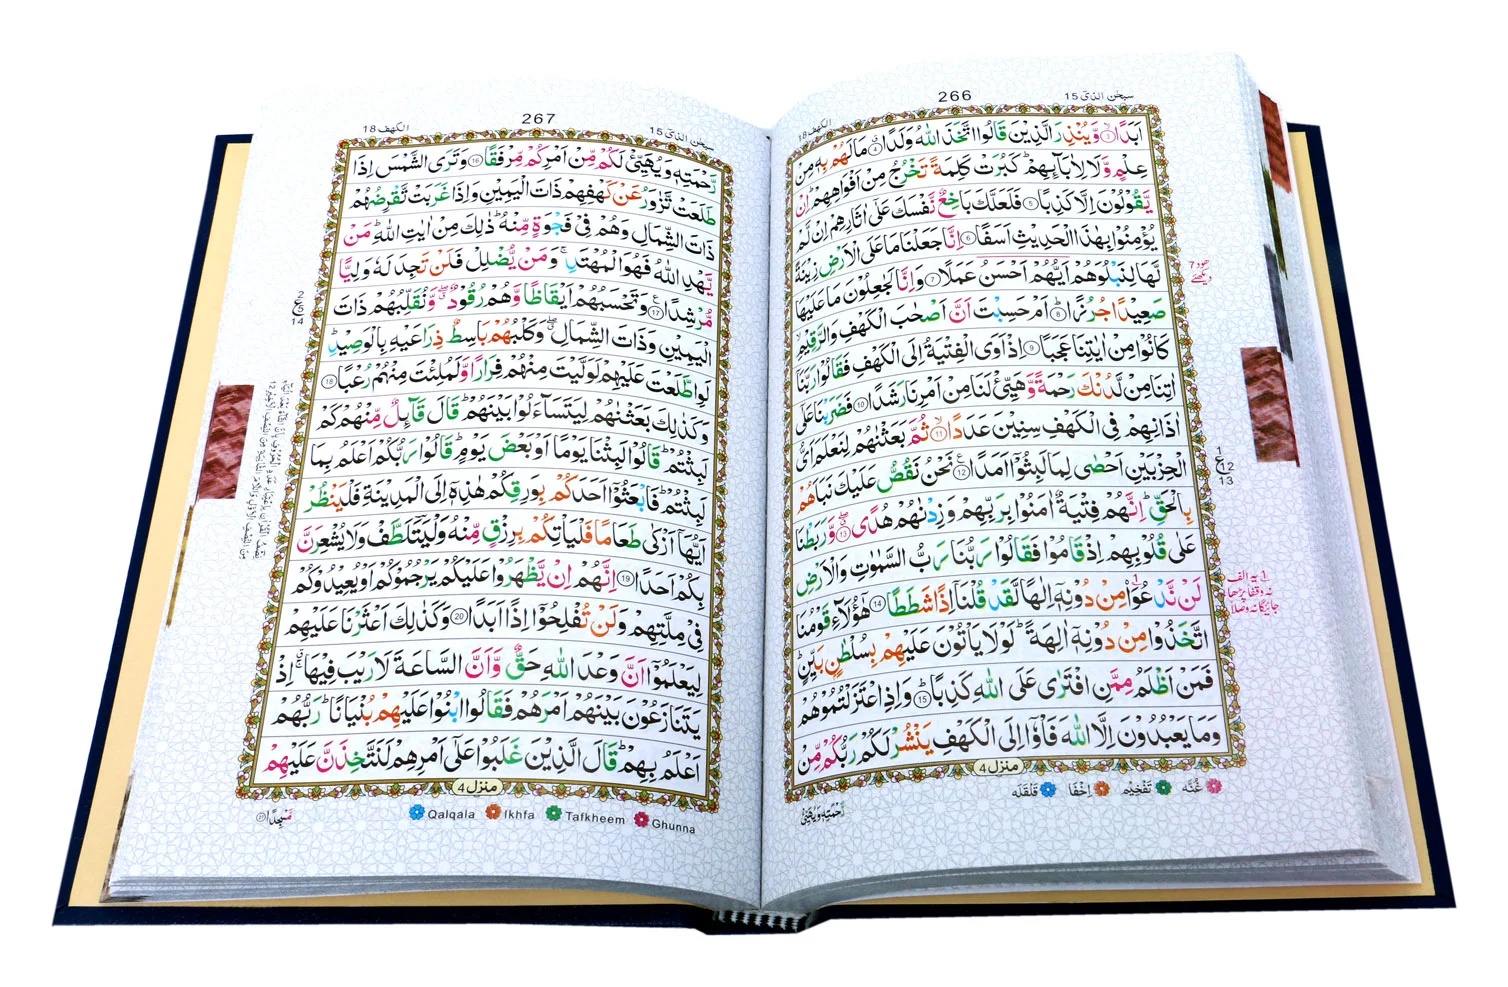 الكهف 18
266
سبحٰن الذىٓ 15
اَبَدًا ۙ﴿3﴾ وَّيُنْذِرَ الَّذِيْنَ قَالُوا اتَّخَذَ اللّٰهُ وَلَدًا ﴿4﴾ مَا لَهُمْ بِهٖ مِنْ
عِلْمٍ وَّلَا لِاٰبَآئِهِمْ ؕ كَبُرَتْ كَلِمَةً تَخْرُجُ مِنْ اَفْوَاهِهِمْ ؕ اِنْ
يَّقُوْلُوْنَ اِلَّا كَذِبًا ﴿5﴾ فَلَعَلَّكَ بَاخِعٌ نَّفْسَكَ عَلٰٓى اٰثَارِهِمْ اِنْ لَّمْ
يُؤْمِنُوْا بِهٰذَا الْحَدِيْثِ اَسَفًا ﴿6﴾ اِنَّا جَعَلْنَا مَا عَلَى الْاَرْضِ زِيْنَةً
لَّهَا لِنَبْلُوَهُمْ اَيُّهُمْ اَحْسَنُ عَمَلًا ﴿7﴾ وَاِنَّا لَجٰعِلُوْنَ مَا عَلَيْهَا
صَعِيْدًا جُرُزًا ؕ﴿8﴾ اَمْ حَسِبْتَ اَنَّ اَصْحٰبَ الْكَهْفِ وَالرَّقِيْمِ
كَانُوْا مِنْ اٰيٰتِنَا عَجَبًا ﴿9﴾ اِذْ اَوَى الْفِتْيَةُ اِلَى الْكَهْفِ فَقَالُوْا رَبَّنَآ
اٰتِنَا مِنْ لَّدُنْكَ رَحْمَةً وَّهَيِّئْ لَنَا مِنْ اَمْرِنَا رَشَدًا ﴿10﴾ فَضَرَبْنَا عَلٰٓى
اٰذَانِهِمْ فِى الْكَهْفِ سِنِيْنَ عَدَدًا ۙ﴿11﴾ ثُمَّ بَعَثْنٰهُمْ لِنَعْلَمَ اَىُّ
الْحِزْبَيْنِ اَحْصٰى لِمَا لَبِثُوْٓا اَمَدًا ﴿12﴾ نَحْنُ نَقُصُّ عَلَيْكَ نَبَاَهُمْ
بِالْحَقِّ ؕ اِنَّهُمْ فِتْيَةٌ اٰمَنُوْا بِرَبِّهِمْ وَزِدْنٰهُمْ هُدًى ﴿13﴾ وَّرَبَطْنَا
عَلٰى قُلُوْبِهِمْ اِذْ قَامُوْا فَقَالُوْا رَبُّنَا رَبُّ السَّمٰوٰتِ وَالْاَرْضِ
لَنْ نَّدْعُوَا۟ مِنْ دُوْنِهٖٓ اِلٰهًا لَّقَدْ قُلْنَآ اِذًا شَطَطًا ﴿14﴾ هٰٓؤُلَآءِ قَوْمُنَا
اتَّخَذُوْا مِنْ دُوْنِهٖٓ اٰلِهَةً ؕ لَوْلَا يَاْتُوْنَ عَلَيْهِمْ بِسُلْطٰنٍۭ بَيِّنٍ ؕ
فَمَنْ اَظْلَمُ مِمَّنِ افْتَرٰى عَلَى اللّٰهِ كَذِبًا ؕ﴿15﴾ وَاِذِ اعْتَزَلْتُمُوْهُمْ
وَمَا يَعْبُدُوْنَ اِلَّا اللّٰهَ فَاْوٗٓا اِلَى الْكَهْفِ يَنْشُرْ لَكُمْ رَبُّكُمْ مِّنْ
منزل 4
غُنَّه تَفْخِيْم اِخْفَا قَلْقَلَه
رَّحْمَتِهٖ وَيُهَيِّئْ
1
ع
12
13
سبحٰن الذىٓ 15
267
الكهف 18
رَّحْمَتِهٖ وَيُهَيِّئْ لَكُمْ مِّنْ اَمْرِكُمْ مِّرْفَقًا ﴿16﴾ وَتَرَى الشَّمْسَ اِذَا
طَلَعَتْ تَّزٰوَرُ عَنْ كَهْفِهِمْ ذَاتَ الْيَمِيْنِ وَاِذَا غَرَبَتْ تَّقْرِضُهُمْ
ذَاتَ الشِّمَالِ وَهُمْ فِىْ فَجْوَةٍ مِّنْهُ ؕ ذٰلِكَ مِنْ اٰيٰتِ اللّٰهِ ؕ مَنْ
يَّهْدِ اللّٰهُ فَهُوَ الْمُهْتَدِ ۚ وَمَنْ يُّضْلِلْ فَلَنْ تَجِدَ لَهٗ وَلِيًّا
مُّرْشِدًا ﴿17﴾ وَتَحْسَبُهُمْ اَيْقَاظًا وَّهُمْ رُقُوْدٌ ۖ وَّنُقَلِّبُهُمْ ذَاتَ
الْيَمِيْنِ وَذَاتَ الشِّمَالِ ۖ وَكَلْبُهُمْ بَاسِطٌ ذِرَاعَيْهِ بِالْوَصِيْدِ ؕ
لَوِ اطَّلَعْتَ عَلَيْهِمْ لَوَلَّيْتَ مِنْهُمْ فِرَارًا وَّلَمُلِئْتَ مِنْهُمْ رُعْبًا ﴿18﴾
وَكَذٰلِكَ بَعَثْنٰهُمْ لِيَتَسَآءَلُوْا بَيْنَهُمْ ؕ قَالَ قَآئِلٌ مِّنْهُمْ كَمْ
لَبِثْتُمْ ؕ قَالُوْا لَبِثْنَا يَوْمًا اَوْ بَعْضَ يَوْمٍ ؕ قَالُوْا رَبُّكُمْ اَعْلَمُ بِمَا
لَبِثْتُمْ ؕ فَابْعَثُوْٓا اَحَدَكُمْ بِوَرِقِكُمْ هٰذِهٖٓ اِلَى الْمَدِيْنَةِ فَلْيَنْظُرْ
اَيُّهَآ اَزْكٰى طَعَامًا فَلْيَاْتِكُمْ بِرِزْقٍ مِّنْهُ وَلْيَتَلَطَّفْ وَلَا يُشْعِرَنَّ
بِكُمْ اَحَدًا ﴿19﴾ اِنَّهُمْ اِنْ يَّظْهَرُوْا عَلَيْكُمْ يَرْجُمُوْكُمْ اَوْ يُعِيْدُوْكُمْ
فِىْ مِلَّتِهِمْ وَلَنْ تُفْلِحُوْٓا اِذًا اَبَدًا ﴿20﴾ وَكَذٰلِكَ اَعْثَرْنَا عَلَيْهِمْ
لِيَعْلَمُوْٓا اَنَّ وَعْدَ اللّٰهِ حَقٌّ وَّاَنَّ السَّاعَةَ لَا رَيْبَ فِيْهَا ۚ اِذْ
يَتَنَازَعُوْنَ بَيْنَهُمْ اَمْرَهُمْ فَقَالُوا ابْنُوْا عَلَيْهِمْ بُنْيَانًا ؕ رَبُّهُمْ
اَعْلَمُ بِهِمْ ؕ قَالَ الَّذِيْنَ غَلَبُوْا عَلٰٓى اَمْرِهِمْ لَنَتَّخِذَنَّ عَلَيْهِمْ
منزل 4
Qalqala Ikhfa Tafkheem Ghunna
مَّسْجِدًا ﴿21﴾
2
ع
5
14